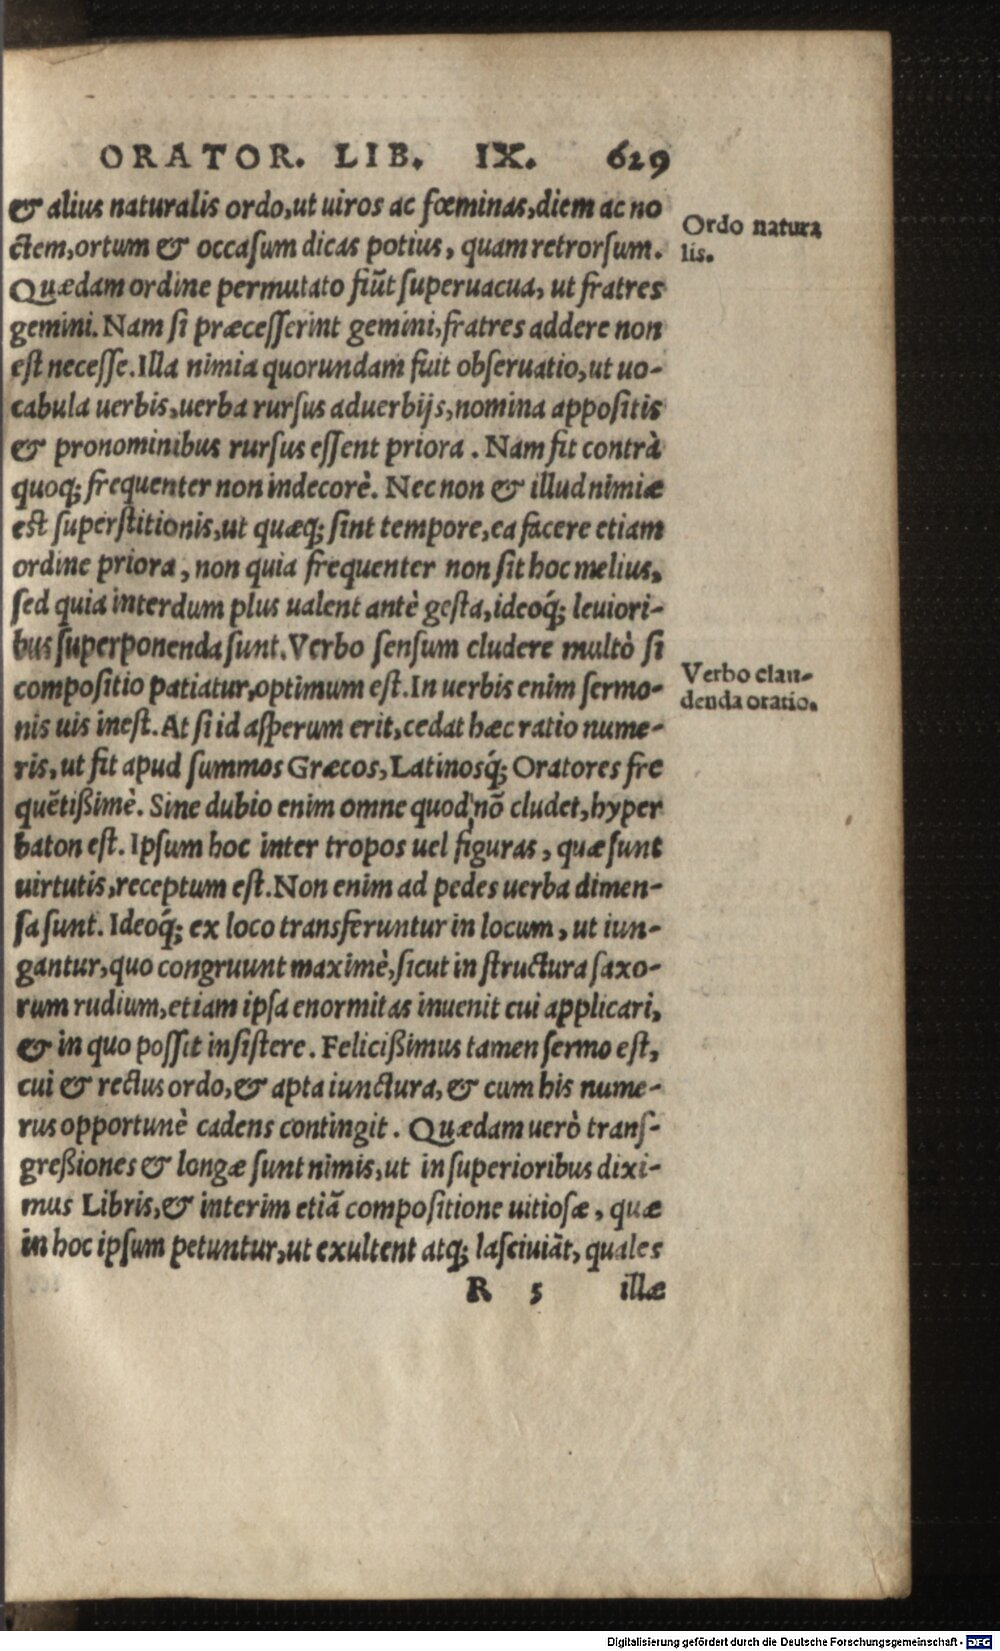 ORATOR. LIB. IX. 629
& alius naturalis ordo, ut uiros ac fœminas, diem ac no
ctem, ortum & occasum dicas potius, quam retrorsum.
Ordo natura
lis.
Quædam ordine permutato fiūt superuacua, ut fratres
gemini. Nam si præcesserint gemini, fratres addere non
est necesse. Illa nimia quorundam fuit obseruatio, ut uo-
cabula uerbis, uerba rursus aduerbijs, nomina appositis
& pronominibus rursus essent priora. Nam fit contrà
quoq; frequenter non indecorè. Nec non & illud nimiæ
est superstitionis, ut quæq; sint tempore, ea facere etiam
ordine priora, non quia frequenter non sit hoc melius,
sed quia interdum plus ualent antè gesta, ideoq́; leuiori-
bus superponenda sunt. Verbo sensum cludere multò si
compositio patiatur, optimum est. In uerbis enim sermo-
Verbo clau-
denda oratio.
nis uis inest. At si id asperum erit, cedat hæc ratio nume-
ris, ut fit apud summos Græcos, Latinosq́; Oratores fre
quētißimè. Sine dubio enim omne quod nō cludet, hyper
baton est. Ipsum hoc inter tropos uel figuras, quæ sunt
uirtutis, receptum est. Non enim ad pedes uerba dimen-
sa sunt. Ideoq́; ex loco transferuntur in locum, ut iun-
gantur, quo congruunt maximè, sicut in structura saxo-
rum rudium, etiam ipsa enormitas inuenit cui applicari,
& in quo possit insistere. Felicißimus tamen sermo est,
cui & rectus ordo, & apta iunctura, & cum his nume-
rus opportunè cadens contingit. Quædam uerò trans-
greßiones & longæ sunt nimis, ut in superioribus dixi-
mus Libris, & interim etiā compositione uitiosæ, quæ
in hoc ipsum petuntur, ut exultent atq; lasciuiāt, quales
R 5 illæ
Digitalisierung gefördert durch die Deutsche Forschungsgemeinschaft - DFG